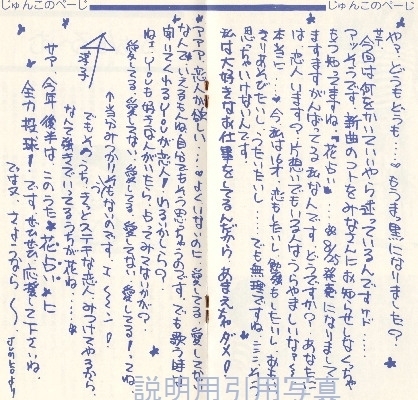 じゅんこのぺーじ
じゅんこのぺーじ
や?、どうもどうも…もうまっ黒になりました?
今回は何をかいていいやら迷っているんですけど…
アッそうです。新曲のコトをみなさんにお知らせしなくっちゃ
もう知ってますね、『花占い』…発売になりまして
ますますがんばってる私なんです。どうですか?あなたに
は、恋人います?片想いでもいる人はうらやましいな?
本当に…今、私は16才。恋もしたいし、勉強もしたいし、おも
きりあそびたいし、うたいたいし…でも無理ですね。
思ちゃいけないんです。
私は大好きなお仕事をしてるんだから、あまえちゃダメ!
アアア、恋人が欲しい…よくいうのに、愛してる、愛してるか
なんていってるもんね。自分でもそう思っちゃうのです。でも歌う時は
聞いてくれるYouが恋人!わかるかしら?
ねェ、Youも好きな人がいたら、占ってみてないか?
愛してる、愛してない、愛してる、愛してない、愛してる!ってね
↑当分みつかりそうもないのです。エーン!
でもそのうち、きっとステキな恋人みつけてやるから
なんて強きでいてるうちが花ね…
淳子
サァ、今年後半は、このうた"花占い"に
全力投球!です。ぜひぜひ応援して下さいね。
では又、さようなら〜
じゅんこより
説明用引用写真